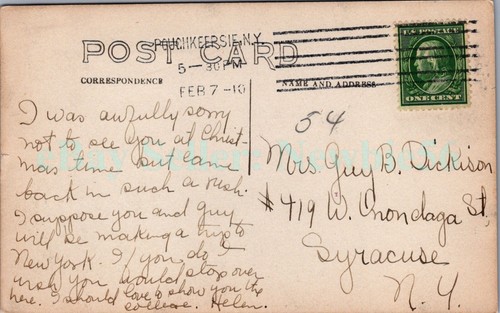 POUGHKEEPSIE, N.Y.
5-30PM
FEB 7-10
POST CARD
U.S. POSTAGE
ONE CENT
CORRESPONDENCE
NAME AND ADDRESS
54
I was awfully sorry
not to see you at Christ
mas time but came
back in such a rush.
I suppose you and Guy
will be making a trip to
New York. If you do I
wish you would stop over
here. I should love to show you the
college. Helen.
Mrs. Guy B. Dickison
#419 W. Onondaga St.
Syracuse
N.Y.